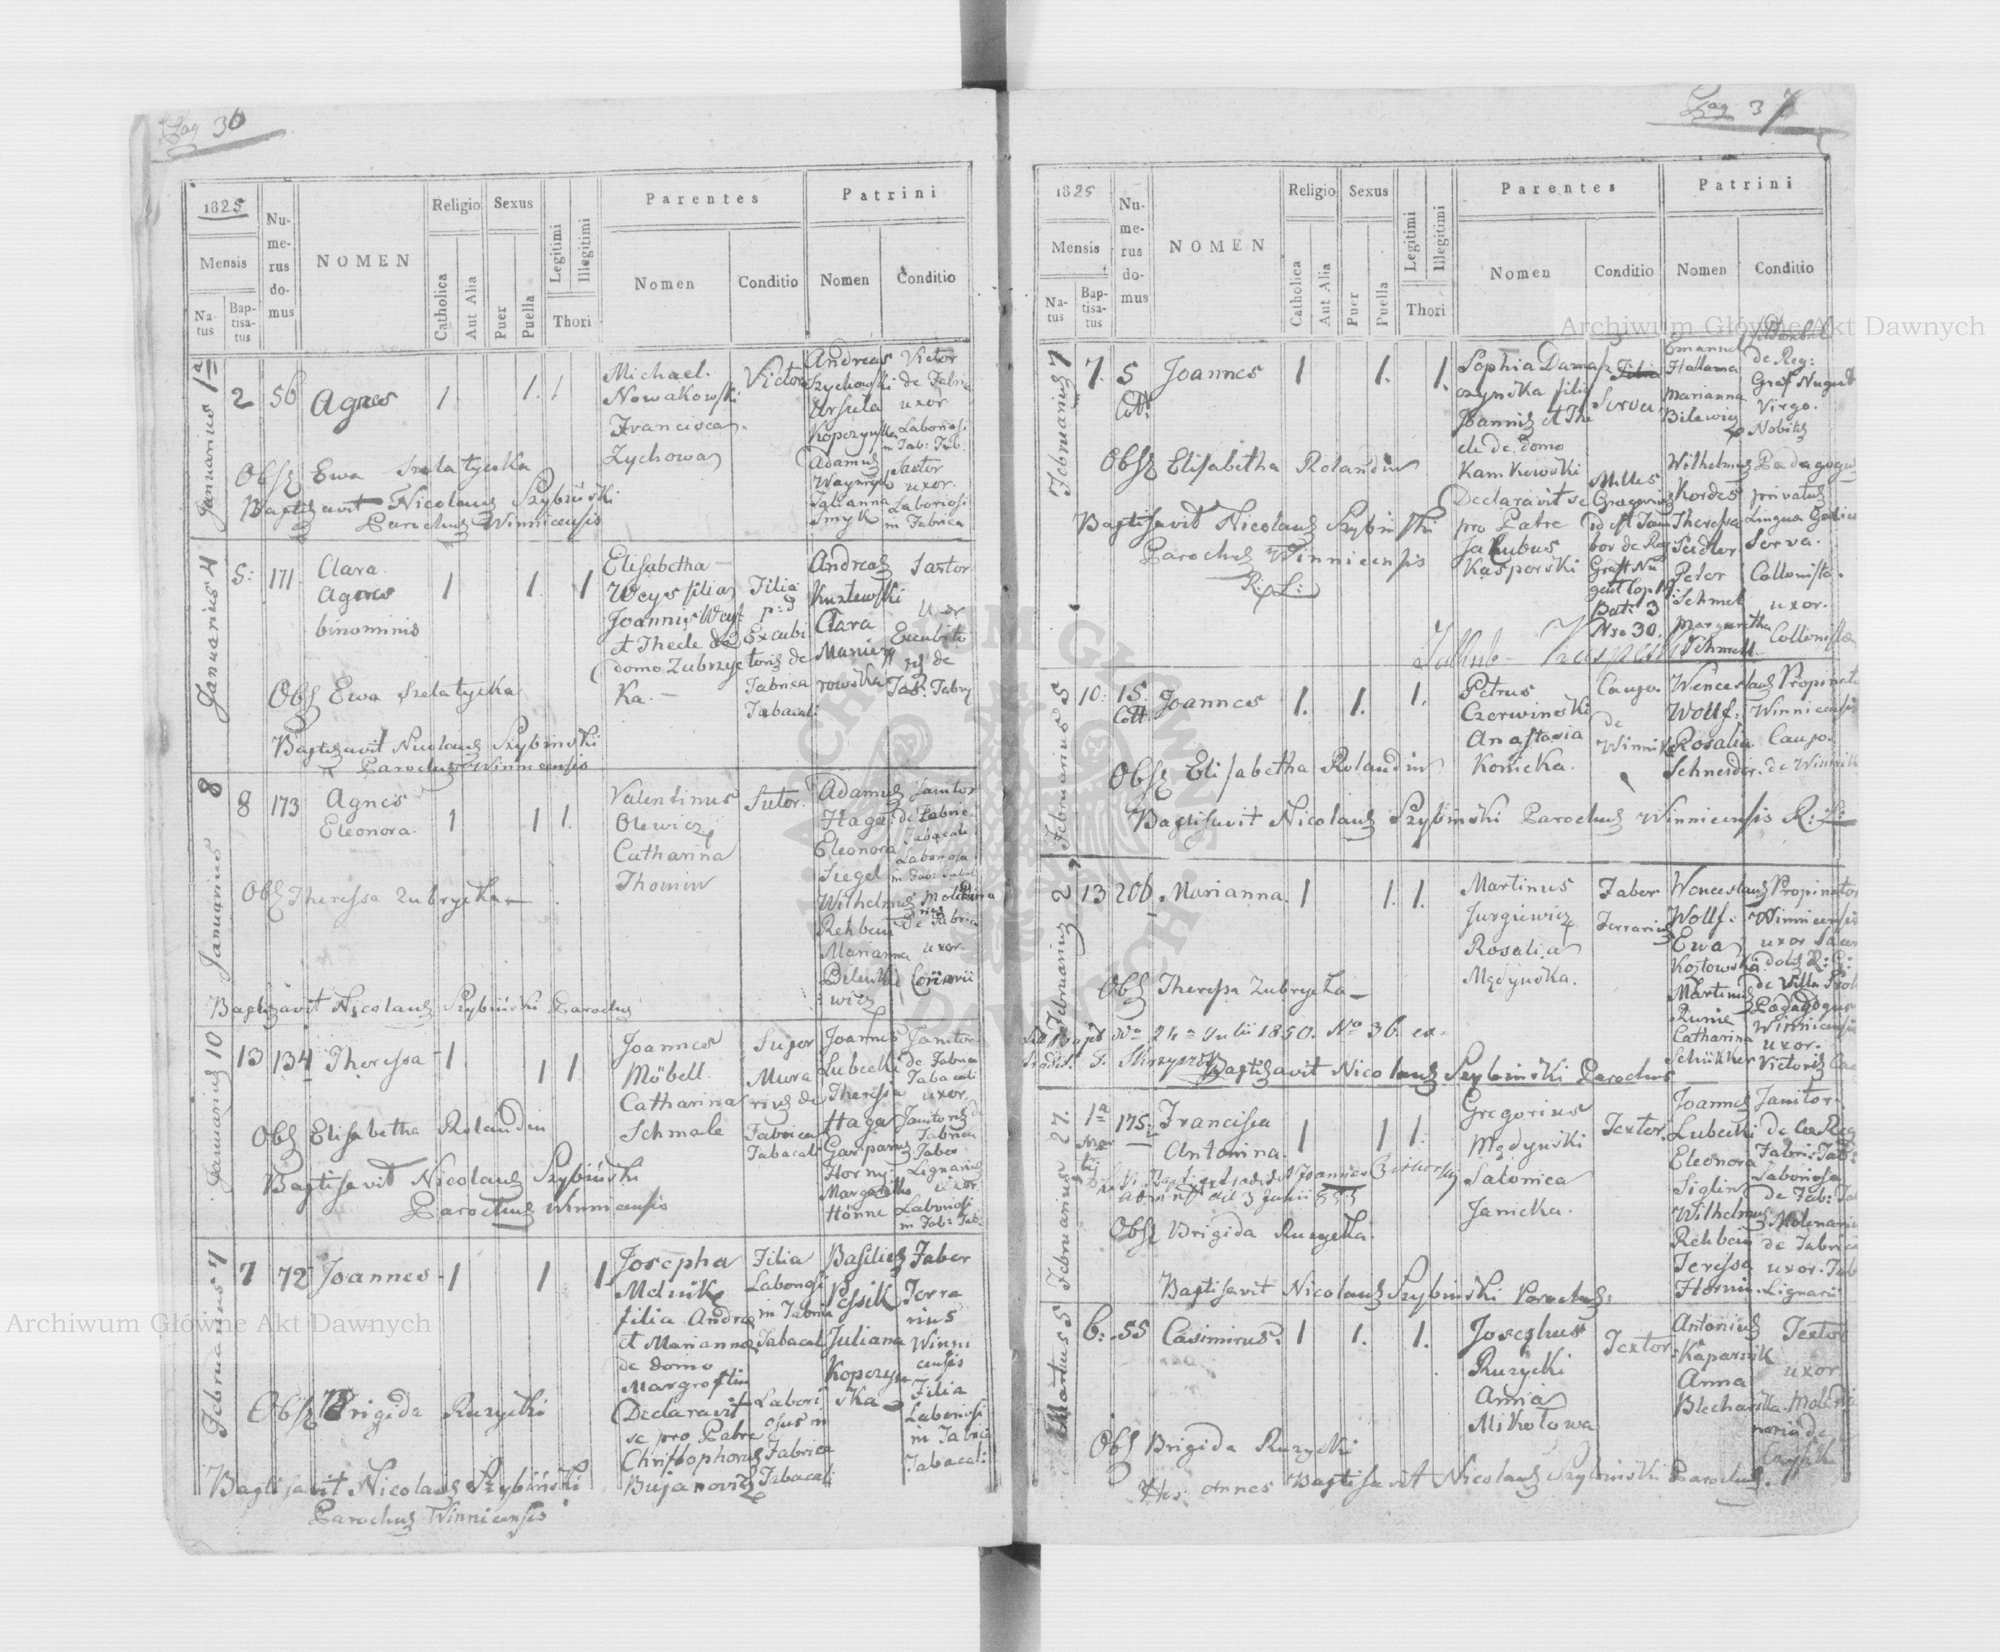 Pag 36
1825
Mensis
Na-
tus
Bap-
tisa-
tus
Nu-
me-
rus
do-
mus
NOMEN
Religio
Catholica
Aut Alia
Sexus
Puer
Puella
Legitimi
Illegitimi
Thori
Parentes
Nomen
Conditio
Patrini
Nomen
Conditio
Januarius 1ª
2
56
Agnes
1
1.
1
Michael
Nowakowski
Francisca
Zychowa
Victor
Andreas
Szychowski
Ursula
Kopczyńska
Adamus
Julianna
Smyk
Victor
de Fabrica
uxor
Laboriosi
in Fab: Tab:
Sartor
uxor.
Laboriosi
in Fabrica
Obs. Ewa Szelatycka
Baptisavit Nicolaus Szybiński
Parochus Winnicensis
Januarius 4
5:
171
Clara
Agnes
binominis
1
1
1
Elisabetha
Weys filia
Joannis Weys
et Thecle de
domo Zubrzyc
Ka.
Filia
Excubi
toris de
Fabrica
Tabacali
Andreas
Clara
Sartor
uxor
Excubito
ris de
Obs. Ewa Szelatycka
Baptisavit Nicolaus Szybiński
Parochus Winnicensis
Januarius 8
8
173
Agnes
Eleonora
1
1
1.
Valentinus
Olewicz
Catharina
Thomin
Sutor.
Adamus
Haga
Eleonora
Siegel
Wilhelmus
Rehbein
Marianna
Bilenke
wicz
Janitor
de Fabrica
Tabacali
Laboriosa
de Fabrica
uxor
Obs. Theressa Zubrycka
Baptisavit Nicolaus Szybiński Parochus
Januarius 10
13
134
Theressa
1
1
1
Joannes
Möbell
Catharina
Schmale
Super
Mura
rius de
Fabrica
Tabacali
Joannes
Lubecki
Theresia
Haga
Gasparus
Horni
Margaretha
Hönne
Janitor
de Fabrica
Tabacali
uxor
Janitoris de
Fabrica
Faber
Lignarius
uxor
Laboriosi
in Fab: Tab:
Obs. Elisabetha Rolandin
Baptisavit Nicolaus Szybiński
Parochus Winnicensis
Februarius 7
7
72
Joannes
1
1
1
Josepha
Melnik
filia Andreæ
et Mariannæ
de Domo
Margroftin
Declaravit
se pro Patre
Christophorus
Bujanowicz
Filia
Laboriosi
in Fabrica
Tabacali
Labori
osus in
Fabrica
Tabacali
Basilius
Pessik
Juliana
Kopczyn
ska
Faber
Ferra
rius
Winni
censis
Filia
Laboriosi
in Fabrica
Tabacali
Obs. Brigida Ruzycki
Baptisavit Nicolaus Szybiński
Parochus Winnicensis
Pag 37
1825
Mensis
Na-
tus
Bap-
tisa-
tus
Nu-
me-
rus
do-
mus
NOMEN
Religio
Catholica
Aut Alia
Sexus
Puer
Puella
Legitimi
Illegitimi
Thori
Parentes
Nomen
Conditio
Patrini
Nomen
Conditio
Februarius 7
7.
5
Coll.
Joannes
1
1.
1.
Sophia Dama
czynska filia
Joannis et The
cle de domo
Kamkowski
Declaravit se
pro Patre
Jakubus
Kasperski
Serva
Miles
Gregarius
id est Tam
bor de Reg
Bat: 3
Nro 30.
Emanuel
Hallama
Marianna
Bilewicz
Wilhelmus
Kordes
Theressa
Seidler
Peter
Schmel
Margaretha
Schmell
de Reg:
Graf Nugent
Virgo.
Nobilis
Pedagogus
privatus
Lingua
Serva.
Collonista.
uxor.
Collonista
Obs. Elisabetha Rolandin
Baptisavit Nicolaus Szybiński
Parochus Winnicensis
R: L:
Jakub Kasperski
Februarius 5
10.
15.
Coll.
Joannes
1.
1.
1.
Petrus
Czerwinski
Anastasia
Konicka.
Caupo.
de
Winniki
Wenceslaus
Wollf.
Rosalia
Schneider.
Propinator
Winnicensis
Caupo.
de Winniki
Obs. Elisabetha Rolandin
Baptisavit Nicolaus Szybiński Parochus Winnicensis R: L:
Februarius 2
13
206.
Marianna
1
1.
1.
Martinus
Jurgiewicz
Rosalia
Mędyńska.
Faber
Ferrarius
Wenceslaus
Wollf.
Ewa
Kozłowska
Martinus
Runie
Catharina
Schükher
Propinator
Winnicensis
uxor
de Villa
Pedagogus
Winnicensis
uxor.
Victoris
Obs. Theressa Zubrycka
24ª Julii 1850. No 36.
Baptisavit Nicolaus Szybiński Parochus
Februarius 27.
1ª
Mar
tij
175.
Francisca
Antonina.
1
1
1.
Gregorius
Mędyński
Salomea
Janicka.
Textor.
Joannes
Lubecki
Eleonora
Siglin
Wilhelmus
Rehbein
Teressa
Hornin
Janitor
Fabri: Tab:
Laboriosa
de Fab: Tab
Molenarius
de Fabrica
uxor.
Lignarii
Obs. Brigida Ruzycka.
Baptisavit Nicolaus Szybiński Parochus.
Martius 5
6.
55
Casimirus.
1
1.
1.
Josephus
Ruzycki
Anna
Mikołowa
Textor.
Antonius
Kaparnik
Anna
Blecharska
Textor
uxor.
Obs. Brigida Ruzycki
Hos omnes Baptisavit Nicolaus Szybiński Parochus.
Archiwum Główne Akt Dawnych
Archiwum Główne Akt Dawnych
ARCHIWUM GŁÓWNE AKT DAWNYCH